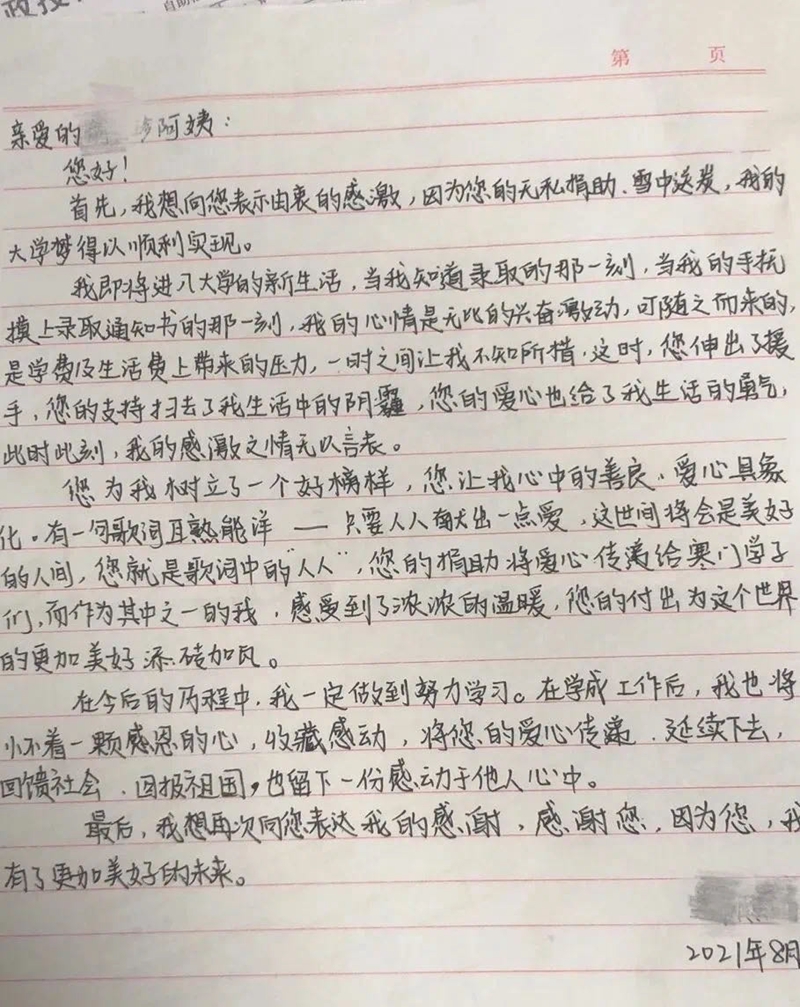 第 页
亲爱的 阿姨：
您好！
首先，我想向您表示由衷的感激，因为您的无私捐助、雪中送炭，我的
大学梦得以顺利实现。
我即将进入大学的新生活，当我知道录取的那一刻，当我的手抚
摸上录取通知书的那一刻，我的心情是无比的兴奋激动，可随之而来的，
是学费及生活费上带来的压力，一时之间让我不知所措，这时，您伸出了援
手，您的支持扫去了我生活中的阴霾，您的爱心也给了我生活的勇气，
此时此刻，我的感激之情无以言表。
您为我树立了一个好榜样，您让我心中的善良、爱心具象
化。有一句歌词耳熟能详——只要人人献出一点爱，这世间将会是美好
的人间，您就是歌词中的“人人”，您的捐助将爱心传递给寒门学子
们，而作为其中之一的我，感受到了浓浓的温暖，您的付出为这个世界
的更加美好添砖加瓦。
在今后的历程中，我一定做到努力学习。在学成工作后，我也将
怀着一颗感恩的心，收藏感动，将您的爱心传递、延续下去，
回馈社会、回报祖国，也留下一份感动于他人心中。
最后，我想再次向您表达我的感谢，感谢您，因为您，我
有了更加美好的未来。
2021年8月